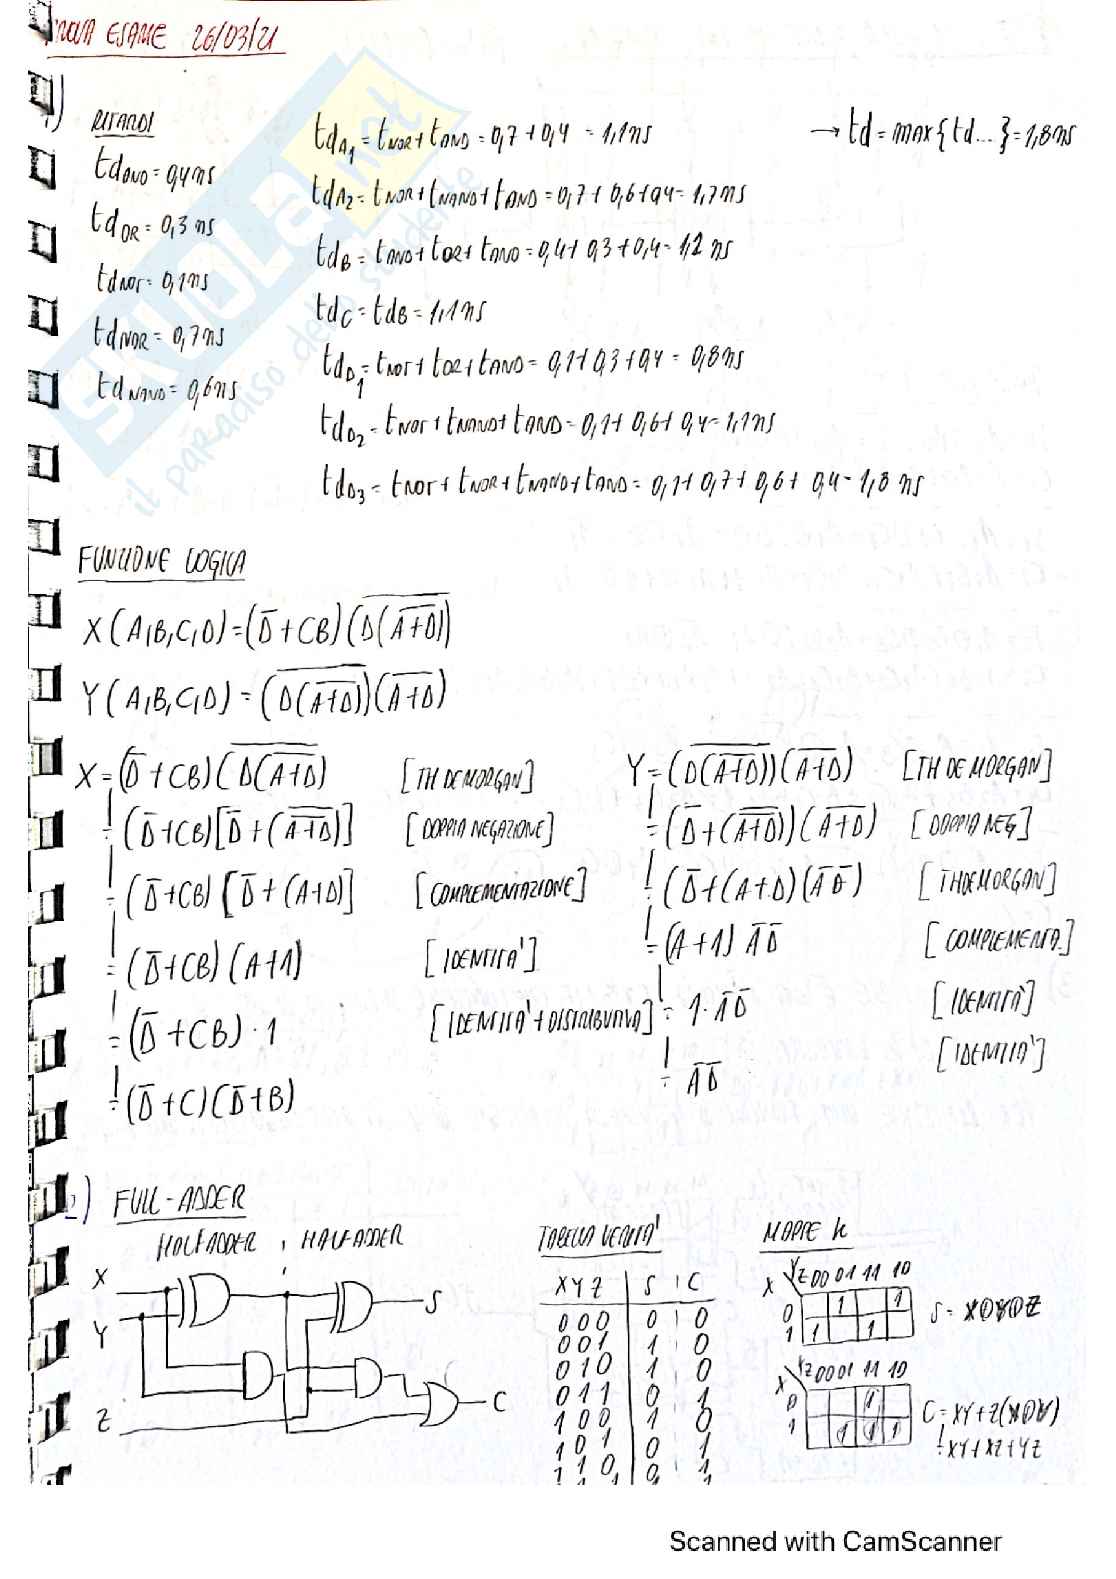 PROVA ESAME 26/03/21
1) RITARDI
td_AND = 0,4 ns
td_OR = 0,3 ns
td_NOT = 0,1 ns
td_NOR = 0,7 ns
td_NAND = 0,6 ns
td_A1 = t_NOR + t_AND = 0,7 + 0,4 = 1,1 ns
td_A2 = t_NOR + t_NAND + t_AND = 0,7 + 0,6 + 0,4 = 1,7 ns
td_B = t_AND + t_OR + t_AND = 0,4 + 0,3 + 0,4 = 1,2 ns
td_C = td_B = 1,1 ns
td_D1 = t_NOT + t_OR + t_AND = 0,1 + 0,3 + 0,4 = 0,8 ns
td_D2 = t_NOT + t_NAND + t_AND = 0,1 + 0,6 + 0,4 = 1,1 ns
td_D3 = t_NOT + t_NOR + t_NAND + t_AND = 0,1 + 0,7 + 0,6 + 0,4 = 1,8 ns
→ td = max{td...} = 1,8 ns
SKUOLA.net
il paradiso dello studente
FUNZIONE LOGICA
X(A,B,C,D) = (D̅ + CB) (\overline{D(\overline{A+D})})
Y(A,B,C,D) = (\overline{D(\overline{A+D})})(\overline{A+D})
X = (D̅ + CB) (\overline{D(\overline{A+D})}) [TH DEMORGAN]
= (D̅ + CB) [D̅ + (\overline{\overline{A+D}})] [DOPPIA NEGAZIONE]
= (D̅ + CB) [D̅ + (A+D)] [COMPLEMENTAZIONE]
= (D̅ + CB) (A+1) [IDENTITA']
= (D̅ + CB) · 1 [IDENTITA' + DISTRIBUTIVA]
= (D̅ + C) (D̅ + B)
Y = (\overline{D(\overline{A+D})})(\overline{A+D}) [TH DE MORGAN]
= (D̅ + (\overline{\overline{A+D}}))(\overline{A+D}) [DOPPIA NEG]
= (D̅ + (A+D)(A̅ D̅) [TH DEMORGAN]
= (A+1) A̅ D̅ [COMPLEMENTA.]
= 1 · A̅ D̅ [IDENTITÀ]
= A̅ D̅ [IDENTITA']
2) FULL-ADDER
HALFADDER , HALFADDER
X
Y
Z
S
C
TABELLA VERITA'
X Y Z | S | C
0 0 0 | 0 | 0
0 0 1 | 1 | 0
0 1 0 | 1 | 0
0 1 1 | 0 | 1
1 0 0 | 1 | 0
1 0 1 | 0 | 1
1 1 0 | 0 | 1
MAPPE K
X YZ 00 01 11 10
0 1 1
1 1 1
S = X⊕Y⊕Z
X YZ 00 01 11 10
0 1
1 1 1 1
C = XY + Z(X⊕Y)
= XY + XZ + YZ
Scanned with CamScanner